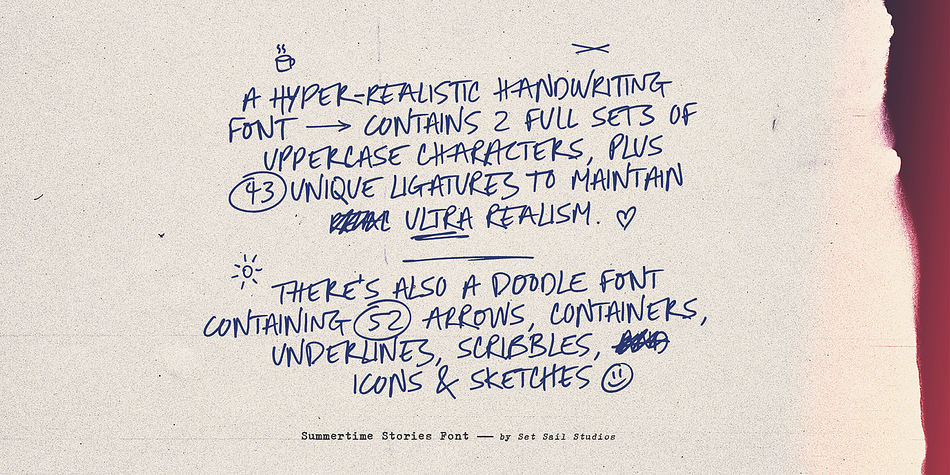 A HYPER-REALISTIC HANDWRITING
FONT → CONTAINS 2 FULL SETS OF
UPPERCASE CHARACTERS, PLUS
43 UNIQUE LIGATURES TO MAINTAIN
ULTRA REALISM. ♡
THERE'S ALSO A DOODLE FONT
CONTAINING 52 ARROWS, CONTAINERS,
UNDERLINES, SCRIBBLES,
ICONS & SKETCHES ☺
Summertime Stories Font — by Set Sail Studios